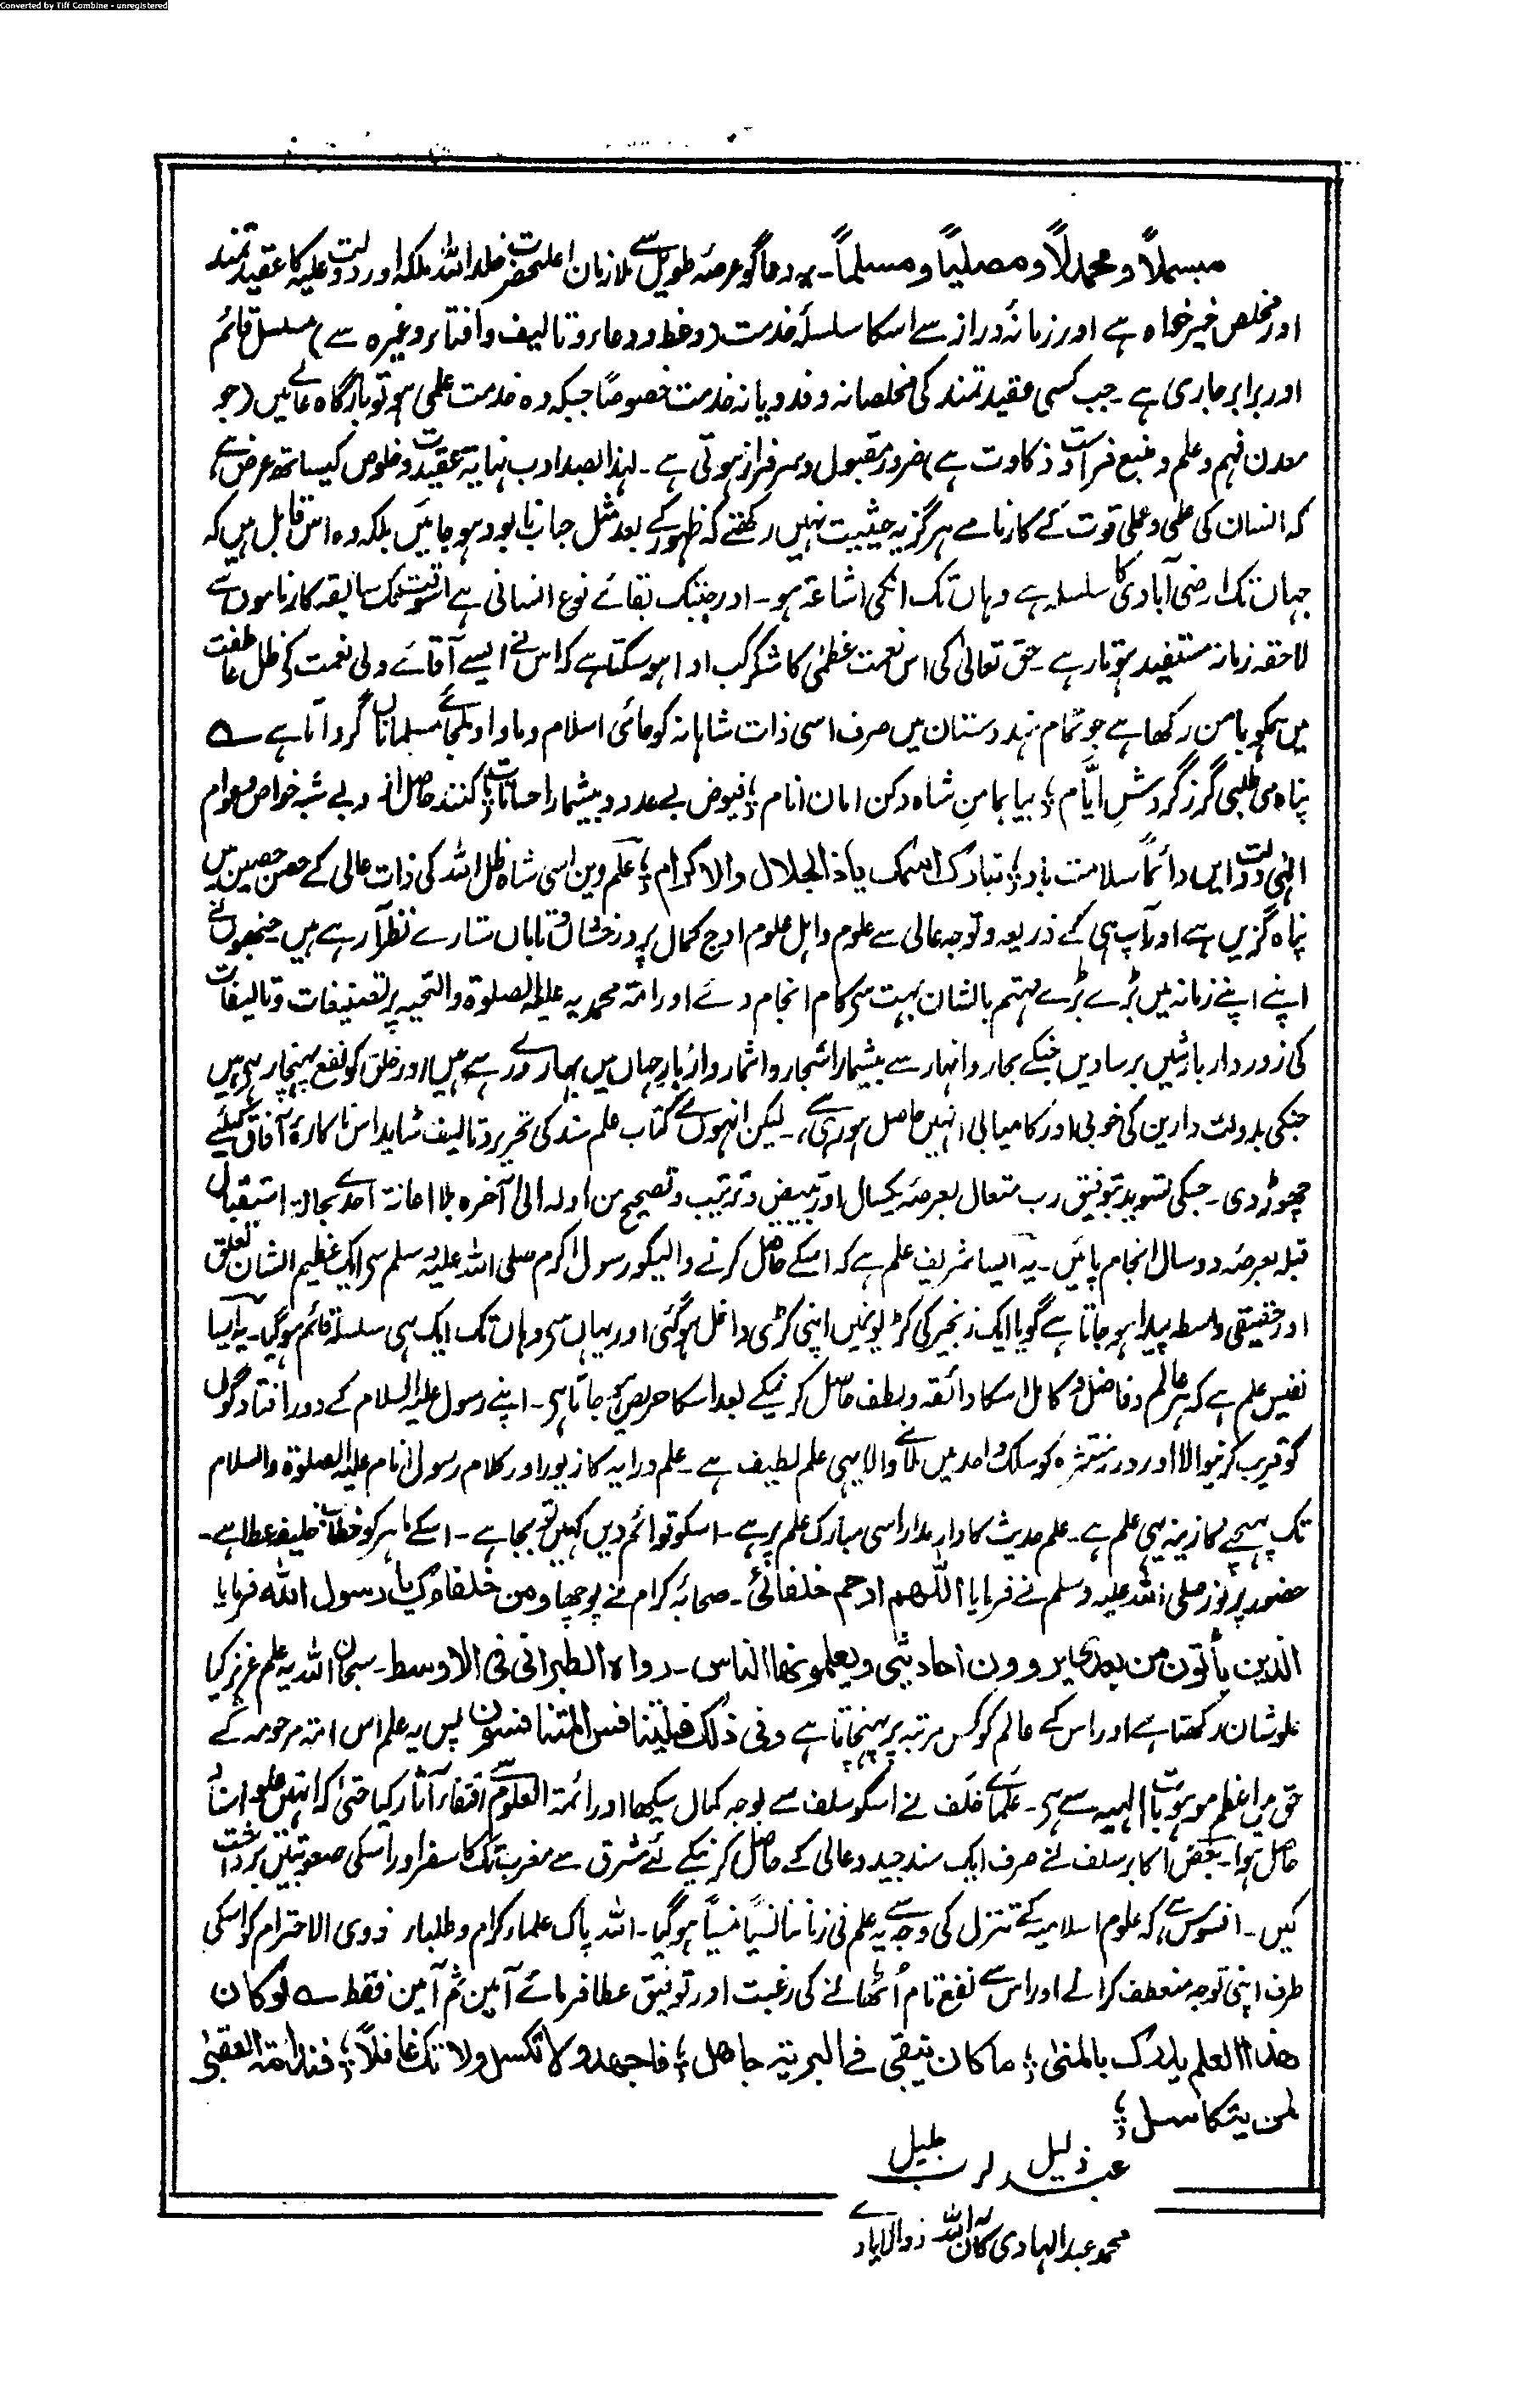 Converted by Tiff Combine - unregistered
مبسملاً و محمدلاً و مصلیاً و مسلماً۔ یہ دعاگو عرصۂ طویل سے ملازمان اعلیحضرت خلد اللہ ملکہ اور دولت علیہ کا عقیدتمند
اور مخلص خیرخواہ ہے اور زمانۂ دراز سے اسکا سلسلۂ خدمت (وعظ و دعاء و تالیف و افتاء وغیرہ سے) مسلسل قائم
اور برابر جاری ہے۔ جب کسی عقیدتمند کی مخلصانہ و فدویانہ خدمت خصوصاً جبکہ وہ خدمت علمی ہو تو بارگاہ عالی میں (جو
معدن فہم و علم و منبع فراست و ذکاوت ہے) ضرور مقبول و سرفراز ہوتی ہے۔ لہذا بصد ادب نہایت عقیدت و خلوص کیساتھ عرض ہے
کہ انسان کی علمی و عملی قوت کے کارنامے ہرگز یہ حیثیت نہیں رکھتے کہ ظہور کے بعد مثل حباب نابود ہو جائیں بلکہ وہ اس قابل ہیں کہ
جہاں تک ارضی آبادی کا سلسلہ ہے وہاں تک انکی اشاعۃ ہو۔ اور جبتک بقائے نوع انسانی ہے اسوقت تک سابقہ کارناموں سے
لاحقہ زمانہ مستفید ہوتا رہے۔ حق تعالیٰ کی اس نعمت عظمیٰ کا شکر کب ادا ہو سکتا ہے کہ اس نے ایسے آقائے ولی نعمت کے ظل عاطفت
میں ہمکو بامن رکھا ہے جو تمام ہندوستان میں صرف اسی ذات شاہانہ کو حامئ اسلام و ماوا و ملجائے مسلمانان گردانا ہے ؎
پناہ می طلبی گر ز گردشِ ایّام ؛ بیا بمامنِ شاہ دکن امان انام ؛ فیوض بے عدد و بیشمار احسانات ؛ کنند حاصل ازو بے شبہ خواص و عوام
الٰہی دولت ایں دائماً سلامت باد ؛ تبارک اسمک یا ذا الجلال والاکرام ؛ علم دین اسی شاہ ظل اللہ کی ذات عالی کے حصن حصین میں
پناہ گزیں ہے اور آپ ہی کے ذریعہ و توجہ عالی سے علوم و اہل علوم اوج کمال پر درخشاں و تاباں ستارے نظر آرہے ہیں جنھوں نے
اپنے اپنے زمانہ میں بڑے بڑے مہتم بالشان بہت سی کام انجام دئے اور امۃ محمدیہ علیہ الصلوۃ والتحیہ پر تصنیفات و تالیفات
کی زوردار بارشیں برسادیں جنکے بحار و انہار سے بیشمار اشجار و اثمار و ازہار جہاں میں بہار دے رہے ہیں اور خلق کو نفع پہنچا رہی ہیں
جنکی بدولت دارین کی خوبی اور کامیابی انہیں حاصل ہورہی ہے۔ لیکن انہوں نے کتاب علم سند کی تحریر و تالیف شاید اس ناکارۂ آفاق کیلئے
چھوڑ دی۔ جسکی تسوید بتوفیق رب متعال بعرصۂ یکسال اور تبییض و ترتیب و تصحیح من اولہ الیٰ آخرہ بلا اعانۃ احدے بحالۃ استقبال
قبلہ بعرصۂ دو سال انجام پائیں۔ یہ ایسا شریف علم ہے کہ اسکے حاصل کرنے والیکو رسول اکرم صلی اللہ علیہ وسلم سے ایک عظیم الشان تعلق
اور حقیقی واسطہ پیدا ہو جاتا ہے گویا ایک زنجیر کی کڑیوں میں اپنی کڑی داخل ہو گئی اور یہاں سے وہاں تک ایک ہی سلسلہ قائم ہوگیا۔ یہ ایسا
نفیس علم ہے کہ ہر عالم و فاضل و کامل اسکا ذائقہ و لطف حاصل کرنیکے بعد اسکا حریص بن جاتا ہے۔ اپنے رسول علیہ السلام کے دور افتادگوں
کو قریب کرنیوالا اور درر منتثرہ کو سلک واحد میں لانے والا یہی علم لطیف ہے۔ علم درایہ کا زیور اور کلام رسول انام علیہ الصلوۃ والسلام
تک پہنچنے کا زینہ یہی علم ہے۔ علم حدیث کا دارمدار اسی مبارک علم پر ہے۔ اسکو قوائم دیں کہیں تو بجا ہے۔ اسکے ماہر کو خطاب خلیفہ عطا ہے۔
حضور پرنور صلی اللہ علیہ وسلم نے فرمایا اللّٰھم ارحم خلفائی۔ صحابۂ کرام نے پوچھا و من خلفاؤک یا رسول اللہ فرمایا
الذین یأتون من بعدی یروون احادیثی و یعلمونھا الناس۔ رواہ الطبرانی فی الاوسط۔ سبحان اللہ یہ علم عزیز کیا
علو شان رکھتا ہے اور اس کے عالم کو کس مرتبہ پر پہنچاتا ہے وفی ذلک فلیتنافس المتنافسون پس یہ علم اس امۃ مرحومہ کے
حق میں اعظم موہوبات الٰہیہ سے ہے۔ علمائے خلف نے اسکو سلف سے بوجہ کمال سیکھا اور ائمۃ العلوم سے اقتفاء آثار کیا حتیٰ کہ انہیں علو اسناد
حاصل ہوا۔ بعض اکابر سلف نے صرف ایک سند جید و عالی کے حاصل کرنیکے لئے مشرق سے مغرب تک کا سفر اور اسکی صعوبتیں برداشت
کیں۔ افسوس ہے کہ علوم اسلامیہ کے تنزل کی وجہ سے یہ علم فی زماننا نسیاً منسیاً ہوگیا۔ اللہ پاک علماء کرام و طلباء ذوی الاحترام کو اسکی
طرف اپنی توجہ منعطف کرائے اور اس سے نفع تام اُٹھانے کی رغبت اور توفیق عطا فرمائے آمین ثم آمین فقط ؎ لو کان
ھذا العلم یدرک بالمنیٰ ؛ ما کان یبقی فی البریۃ جاھل ؛ فاجھد ولا تکسل ولا تک غافلاً ؛ فندامۃ العقبیٰ
لمن یتکاسل ؛
عبد ذلیل لرب جلیل
محمد عبدالہادی کان اللہ لہ